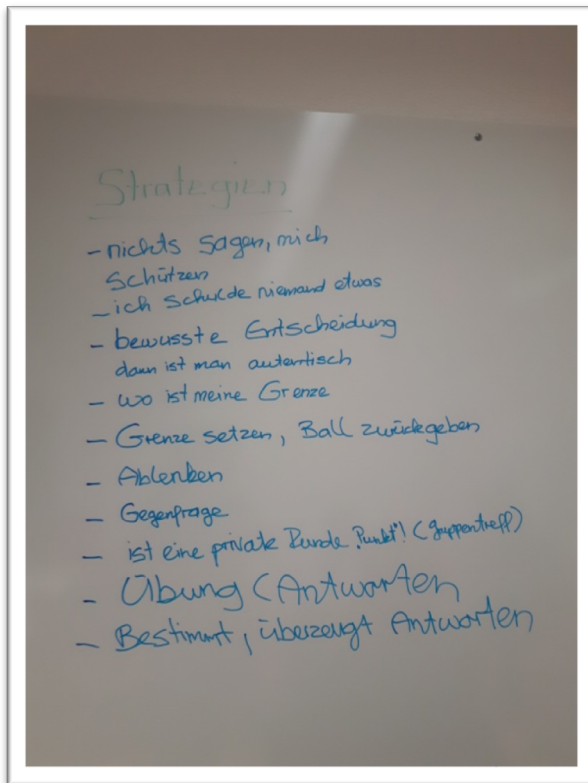 Strategien
- nichts sagen, mich
schützen
- ich schulde niemand etwas
- bewusste Entscheidung
dann ist man autentisch
- wo ist meine Grenze
- Grenze setzen, Ball zurückgeben
- Ablenken
- Gegenfrage
- ist eine private Runde „Punkt"! (Gruppentreff)
- Übung (Antworten
- Bestimmt, überzeugt Antworten